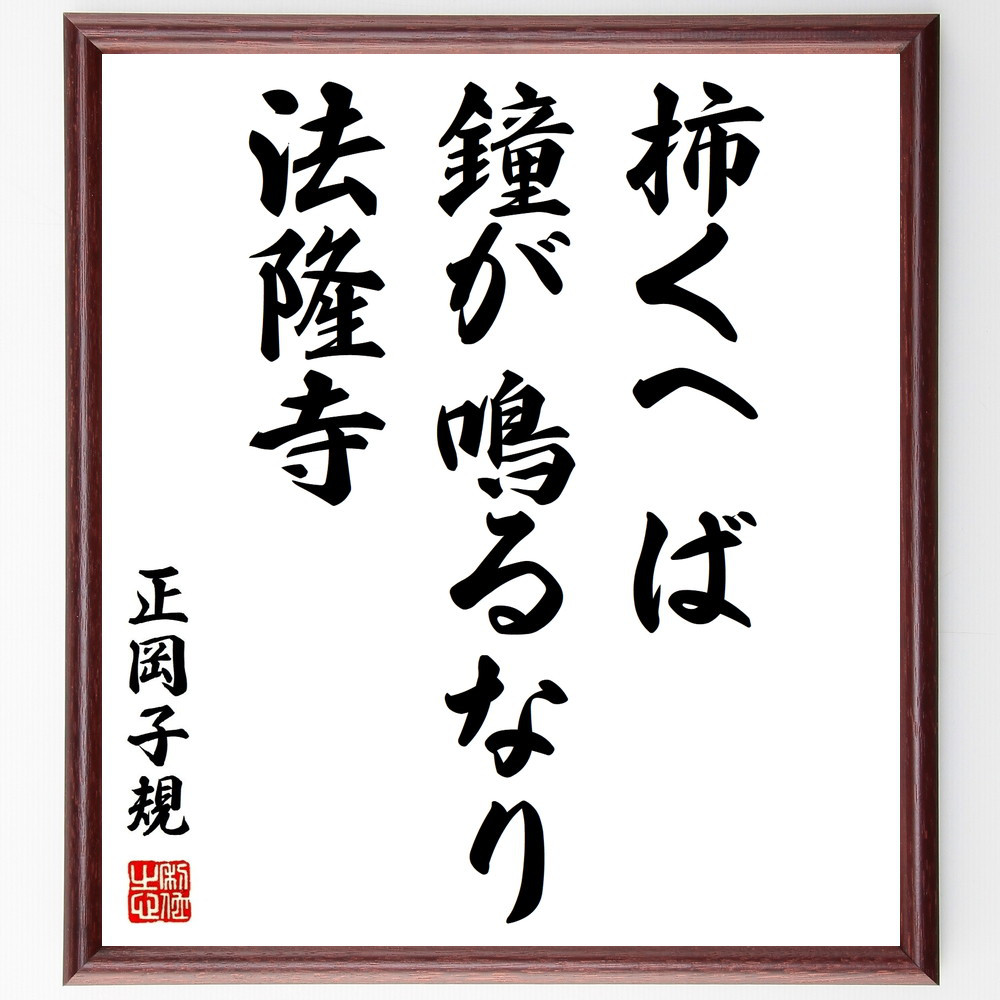 柿くへば
鐘が鳴るなり
法隆寺
正岡子規